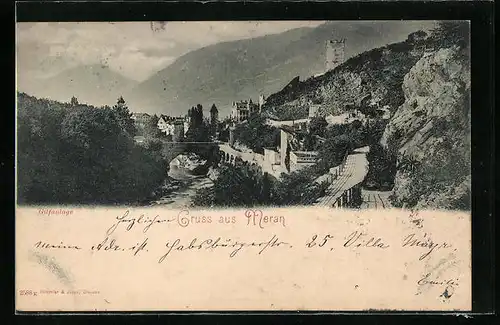 Gilfanlage
Gruss aus Meran
herzlichen
meine Adr. ist: Habsburgerstr. 25, Villa Mayr
Emili